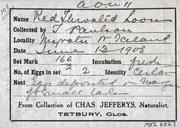 Name Red Throated Loon
Collected by J Paulson
Locality Myvatn N. Iceland
Date June 13 1908
Set Mark 166 Incubation fresh
No. of Eggs in set 2 Identity Certain
Nest Eggs deposited on
From Collection of CHAS. JEFFERYS, Naturalist.
TETBURY, GLOS.